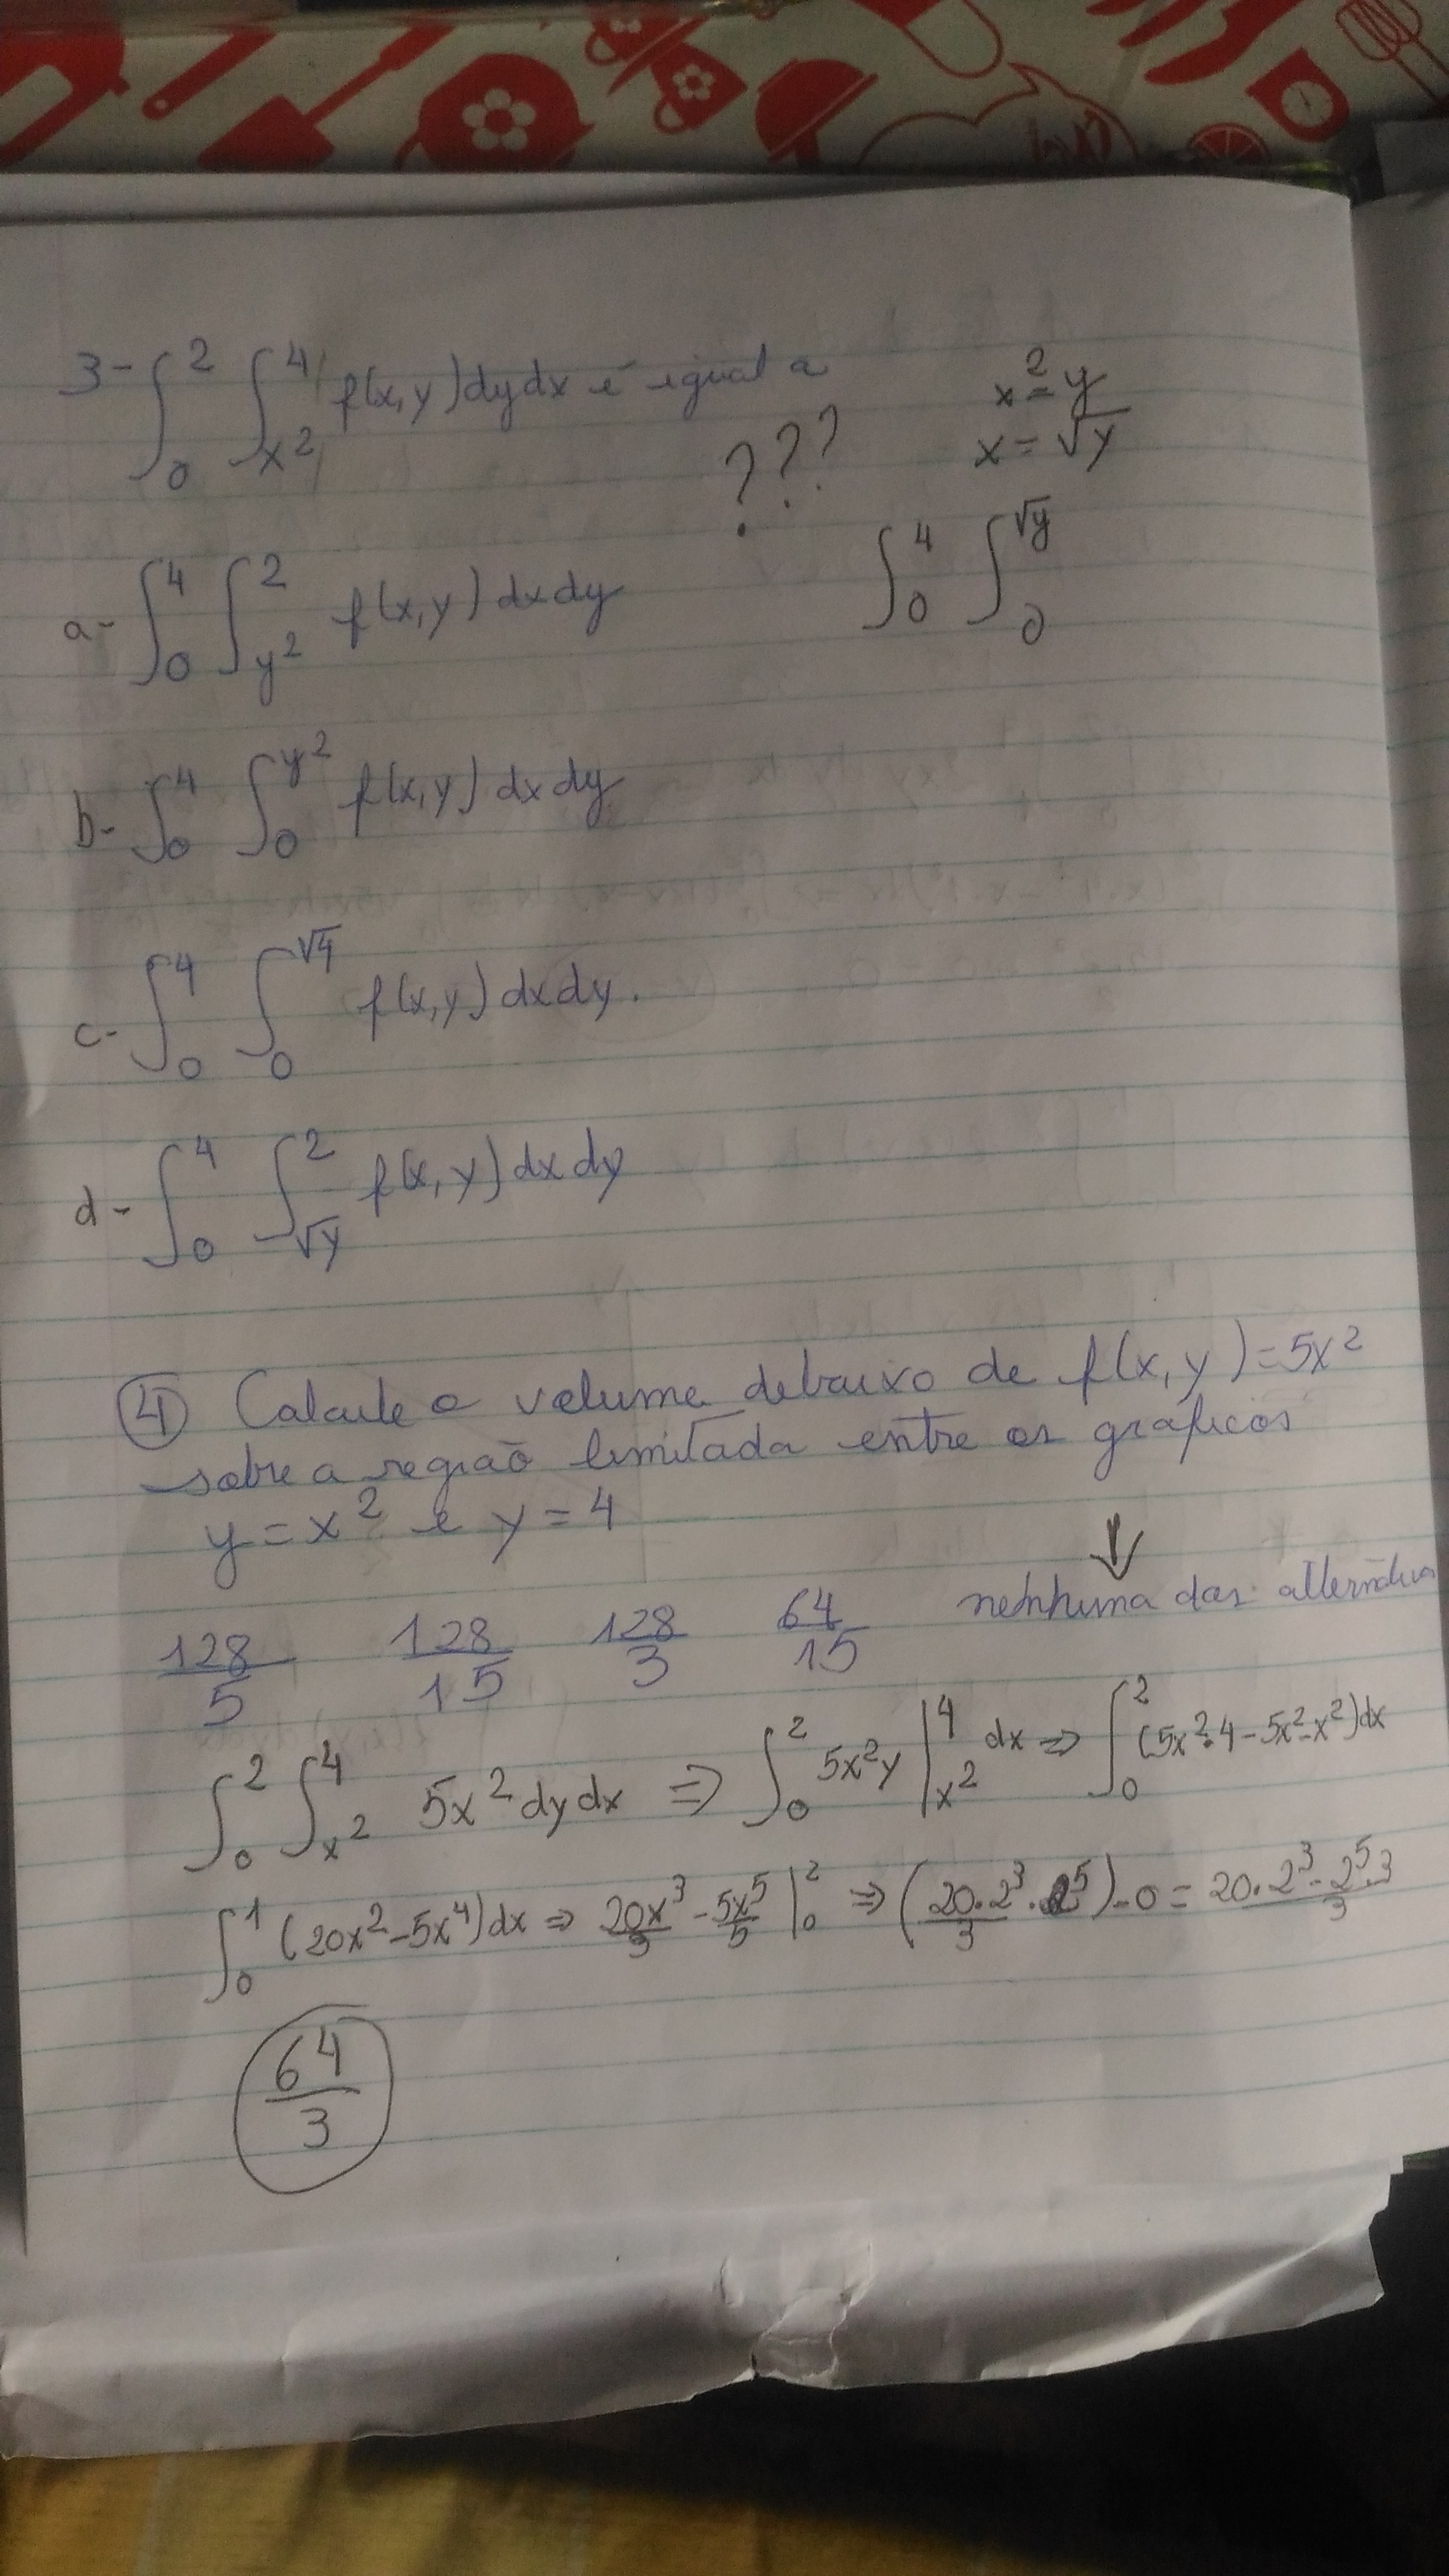 3- ∫₀² ∫ₓ²⁴ f(x,y)dydx é igual a
???
x²=y
x=√y
∫₀⁴ ∫₀^√y
a- ∫₀⁴ ∫_y²^2 f(x,y)dxdy
b- ∫₀⁴ ∫₀^y² f(x,y)dxdy
c- ∫₀⁴ ∫₀^√4 f(x,y)dxdy.
d- ∫₀⁴ ∫_√y^2 f(x,y)dxdy
④ Calcule o volume debaixo de f(x,y)=5x²
sobre a região limitada entre os gráficos
y=x² e y=4
↓
128/5 128/15 128/3 64/15 nenhuma das alternativa
∫₀² ∫_x²^4 5x²dydx ⇒ ∫₀² 5x²y |_x²^4 dx ⇒ ∫₀² (5x²·4-5x²-x²)dx
∫₀¹ (20x²-5x⁴)dx ⇒ 20x³/3 - 5x⁵/5 |₀² ⇒ (20·2³/3 · 2⁵)-0 = 20·2³-2⁵·3/3
64/3